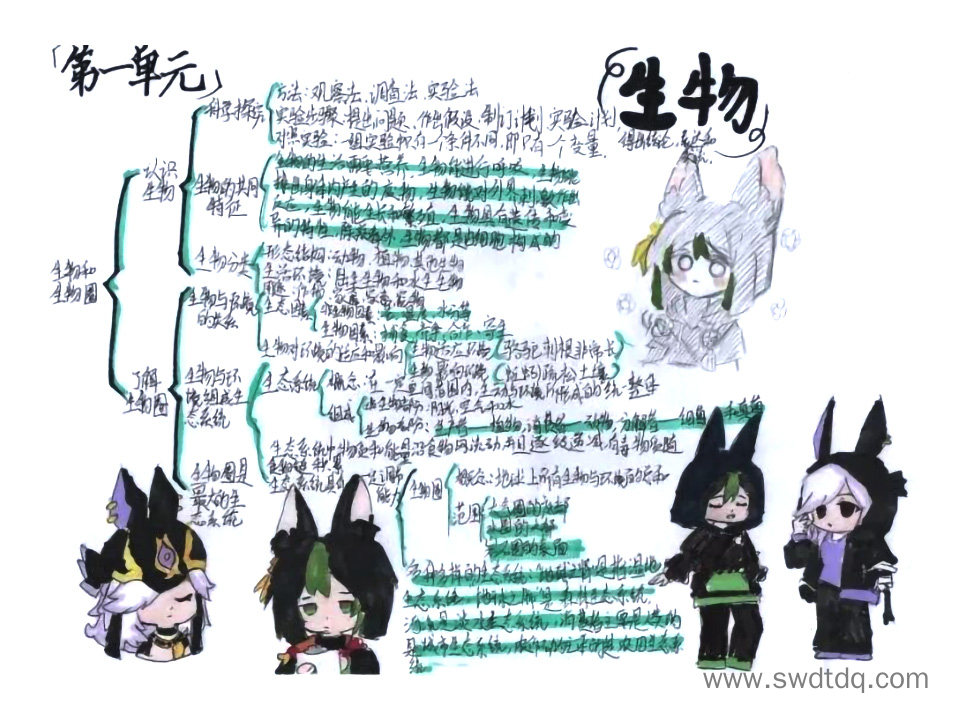 「第一单元」
生物
科学探究
方法：观察法、调查法、实验法
实验步骤：提出问题、作出假设、制订计划、实验计划
得出结论，表达和
对照实验：一组实验中只有一个条件不同，即只有一个变量。
认识
生物
生物的共同
特征
生物的生活需要营养 生物能进行呼吸 生物能
排出身体内产生的废物 生物能对外界刺激作出
反应，生物能生长和繁殖，生物具有遗传和变
异的特性，除病毒外，生物都是由细胞构成的
生物分类
形态结构：动物，植物，其他生物
生活环境：陆生生物和水生生物
用途：作物、家禽、家畜、宠物
生物和
生物圈
生物与环境
的关系
生态因素
非生物因素：光、温度、水分等
生物因素：捕食、竞争、合作、寄生
生物对环境的适应和影响
生物适应环境
骆驼刺根非常长
生物影响环境
蚯蚓疏松土壤
了解
生物圈
生物与环
境组成生
态系统
生态系统
概念：在一定空间范围内，生物与环境所形成的统一整体
组成
非生物部分：阳光、空气和水
生物部分：生产者 植物，消费者 动物，分解者 细菌 和真菌
生态系统中物质和能量沿食物网流动并且逐级递减，有毒物质随
生态系统具有一定调节
能力
生物圈是
最大的生
态系统
生物圈
概念：地球上所有生物与环境的总和
范围
大气圈的底部
水圈的大部
岩石圈的表面
多种多样的生态系统：地球之肾是指湿地
生态系统，地球之肺是森林生态系统，
www.swdtdq.com